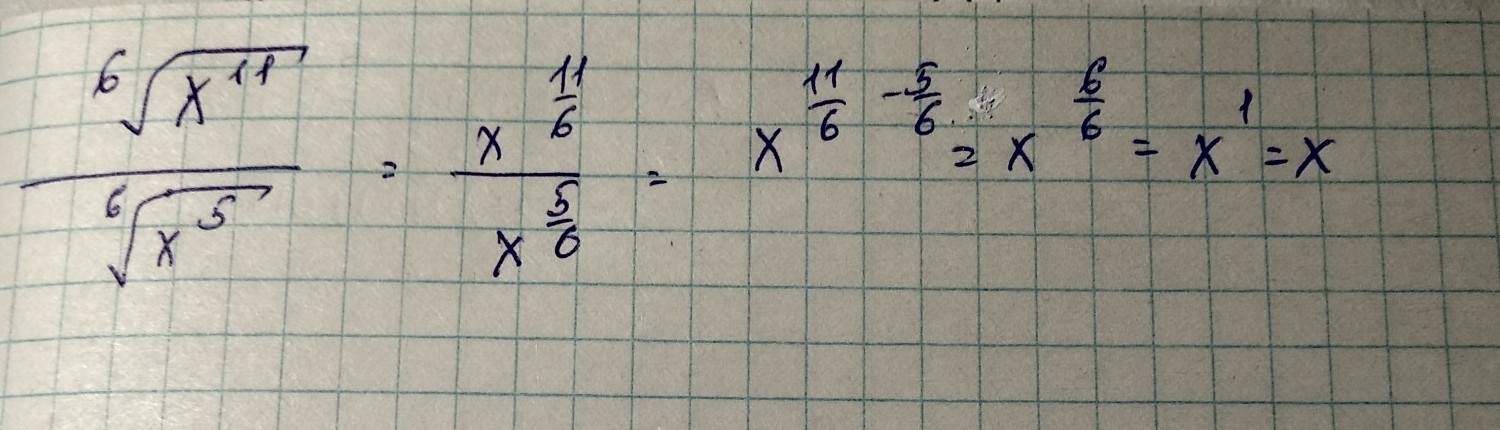 ⁶√x¹¹ / ⁶√x⁵ = x^(11/6) / x^(5/6) = x^(11/6 - 5/6) = x^(6/6) = x¹ = x